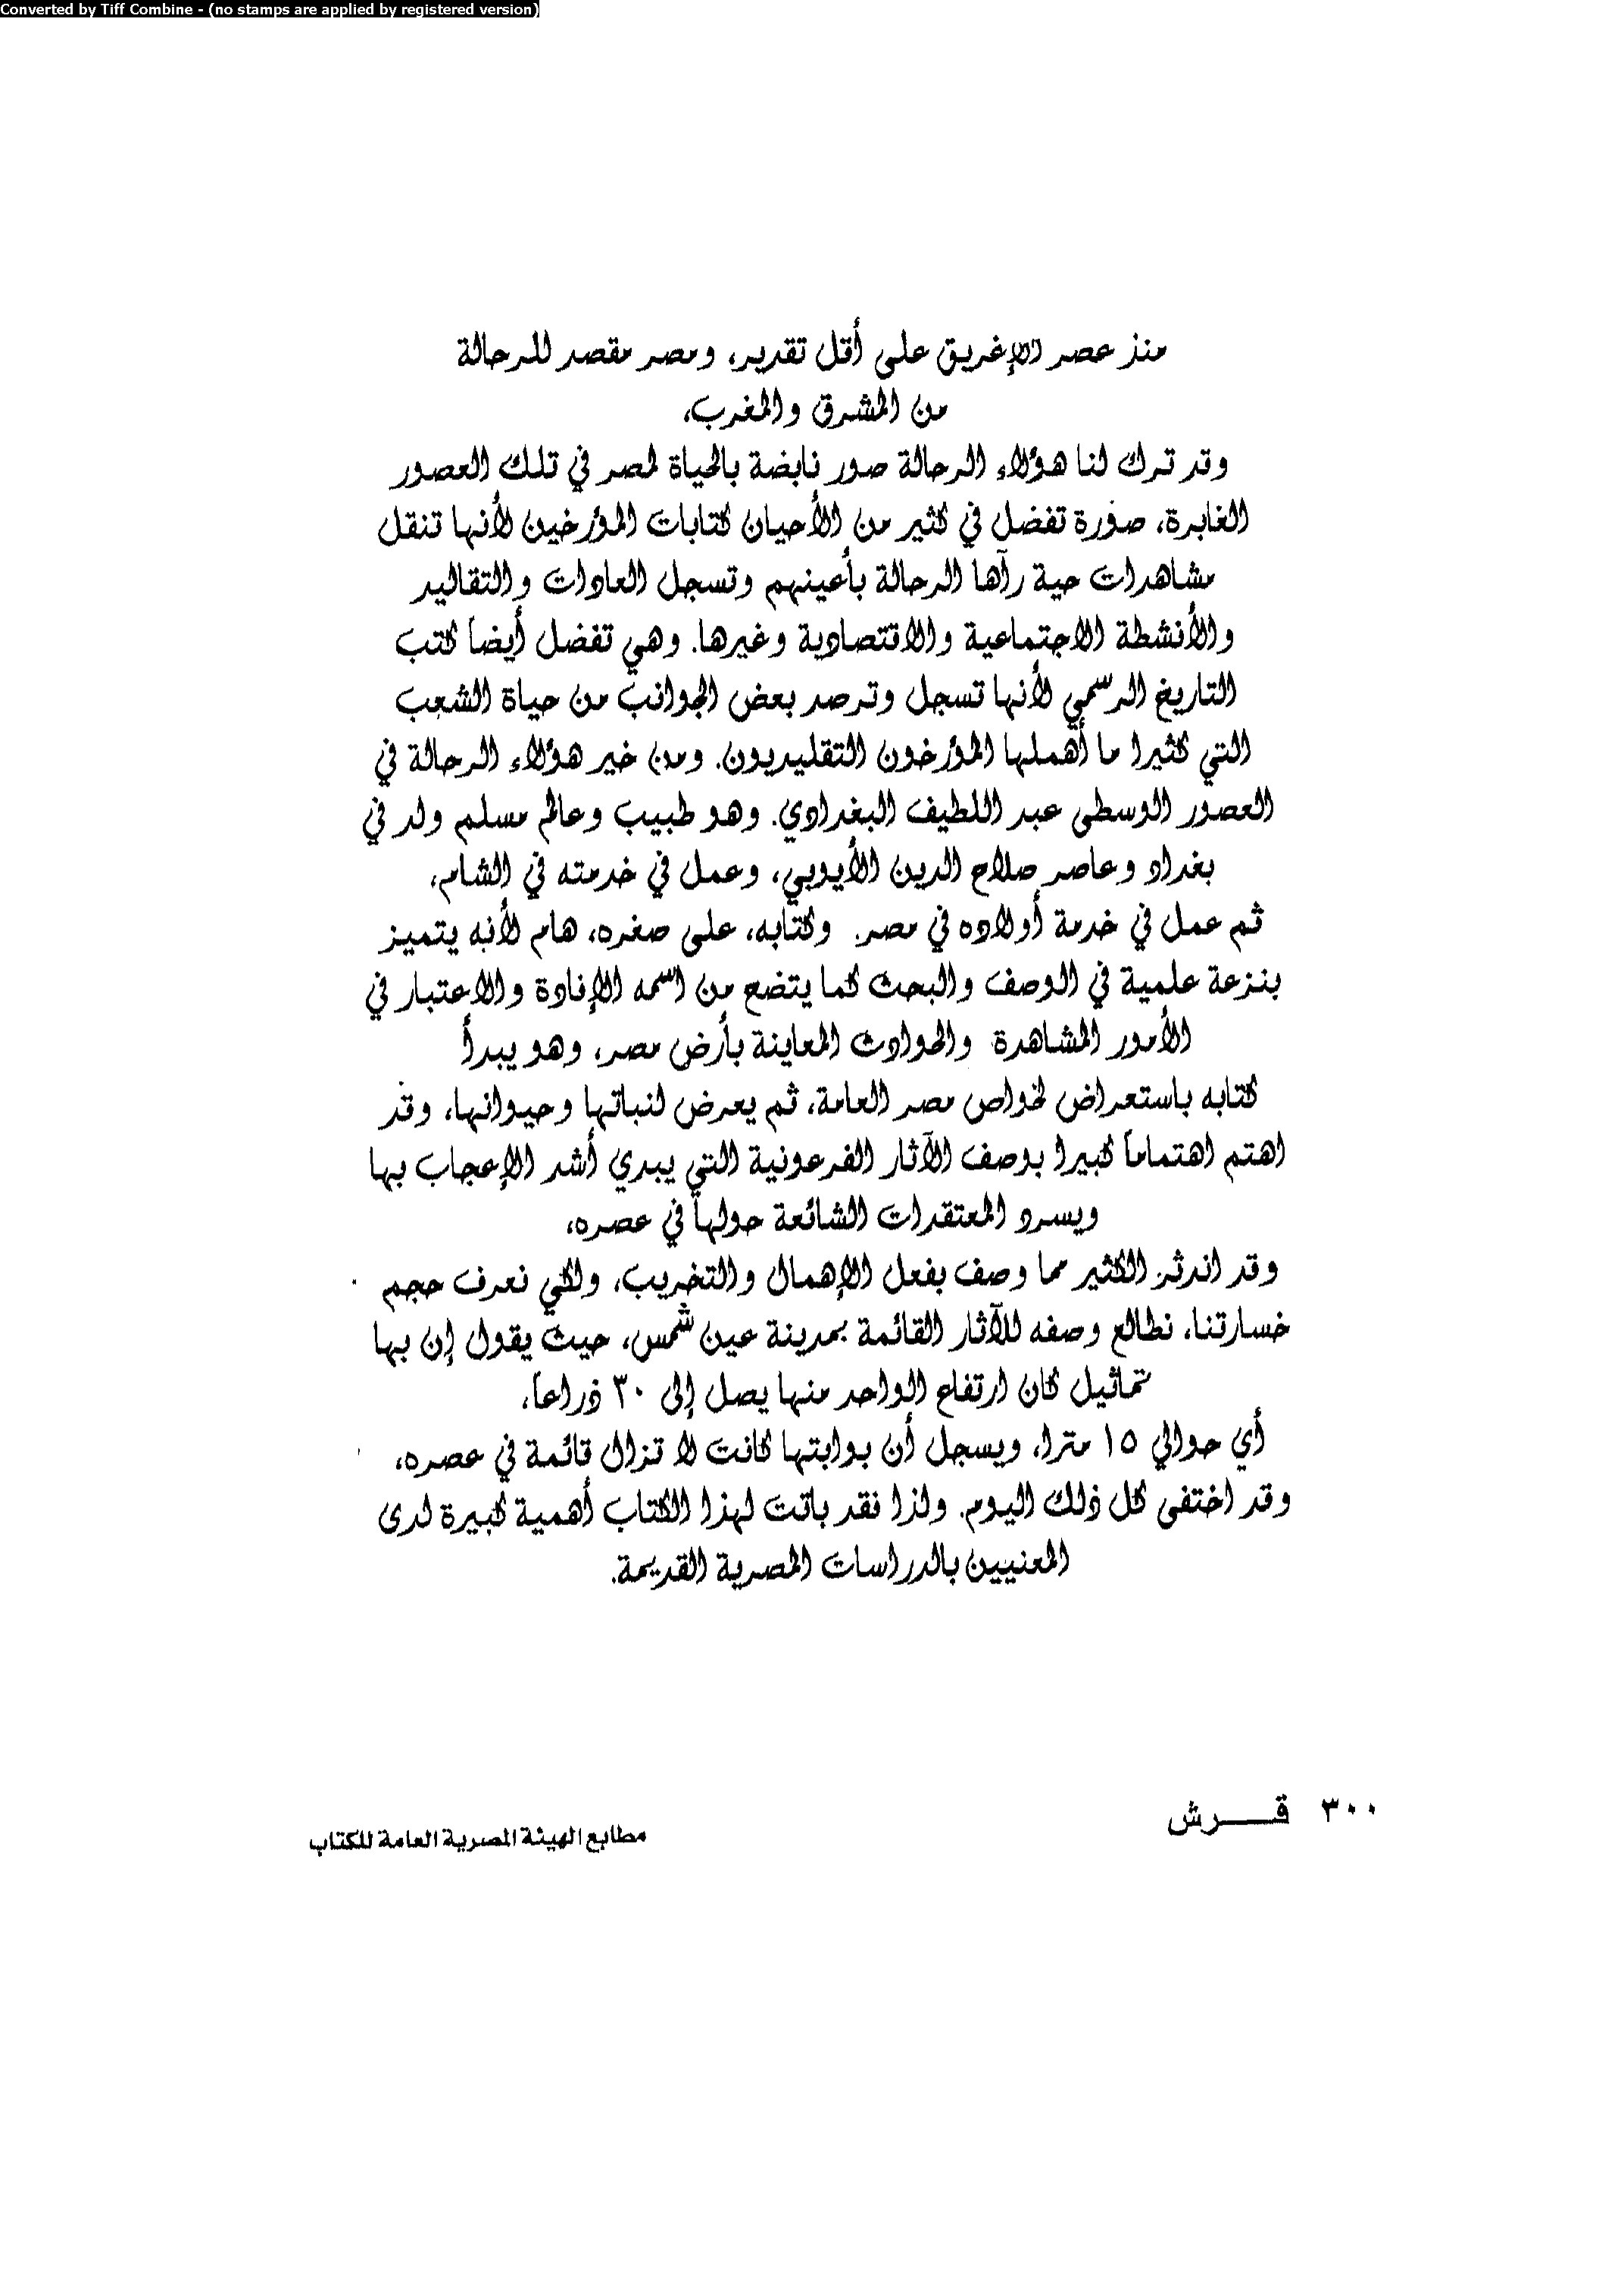 Converted by Tiff Combine - (no stamps are applied by registered version)
منذ عصر الإغريق على أقل تقدير، ومصر مقصد للرحالة
من المشرق والمغرب،
وقد ترك لنا هؤلاء الرحالة صور نابضة بالحياة لمصر في تلك العصور
الغابرة، صورة تفضل في كثير من الأحيان كتابات المؤرخين لأنها تنقل
مشاهدات حية رآها الرحالة بأعينهم وتسجل العادات والتقاليد
والأنشطة الاجتماعية والاقتصادية وغيرها. وهي تفضل أيضاً كتب
التاريخ الرسمي لأنها تسجل وترصد بعض الجوانب من حياة الشعب
التي كثيرا ما أهملها المؤرخون التقليديون. ومن خير هؤلاء الرحالة في
العصور الوسطى عبد اللطيف البغدادي. وهو طبيب وعالم مسلم ولد في
بغداد وعاصر صلاح الدين الأيوبي، وعمل في خدمته في الشام،
ثم عمل في خدمة أولاده في مصر. وكتابه، على صغره، هام لأنه يتميز
بنزعة علمية في الوصف والبحث كما يتضح من اسمه الإفادة والاعتبار في
الأمور المشاهدة والحوادث المعاينة بأرض مصر، وهو يبدأ
كتابه باستعراض لخواص مصر العامة، ثم يعرض لنباتها وحيوانها، وقد
اهتم اهتماماً كبيرا بوصف الآثار الفرعونية التي يبدي أشد الإعجاب بها
ويسرد المعتقدات الشائعة حولها في عصره،
وقد اندثر الكثير مما وصف بفعل الإهمال والتخريب، ولكي نعرف حجم
خسارتنا، نطالع وصفه للآثار القائمة بمدينة عين شمس، حيث يقول إن بها
تماثيل كان ارتفاع الواحد منها يصل إلى ٣٠ ذراعاً،
أي حوالي ١٥ مترا، ويسجل أن بوابتها كانت لا تزال قائمة في عصره،
وقد اختفى كل ذلك اليوم. ولذا فقد باتت لهذا الكتاب أهمية كبيرة لدى
المعنيين بالدراسات المصرية القديمة.
٣٠٠ قـــرش
مطابع الهيئة المصرية العامة للكتاب